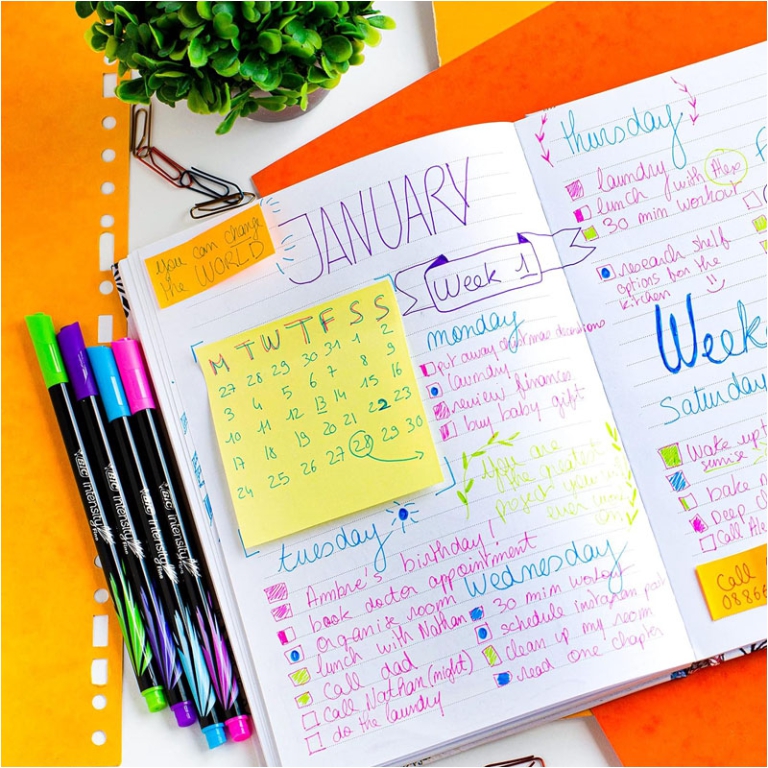 you can change
the WORLD
JANUARY
Week 1
M T W T F S S
27 28 29 30 31 1 2
3 4 5 6 7 8 9
10 11 12 13 14 15 16
17 18 19 20 21 22 23
24 25 26 27 28 29 30
monday
put away christmas decorations
laundry
review finances
buy baby gift
you are
the greatest
project you'll
ever
on
tuesday
Ambre's birthday!
book doctor appointment
organise room
lunch with Nathan
call dad
call Nathan (night)
do the laundry
Wednesday
30 min workout
schedule instagram post
clean up my room
read one chapter
thursday
laundry
lunch with
30 min workout
research shelf
options for the
kitchen
Week
Saturday
Wake up
bake
Deep
Call
Call
BIC Intensity fine
BIC Intensity fine
BIC Intensity fine
BIC Intensity fine